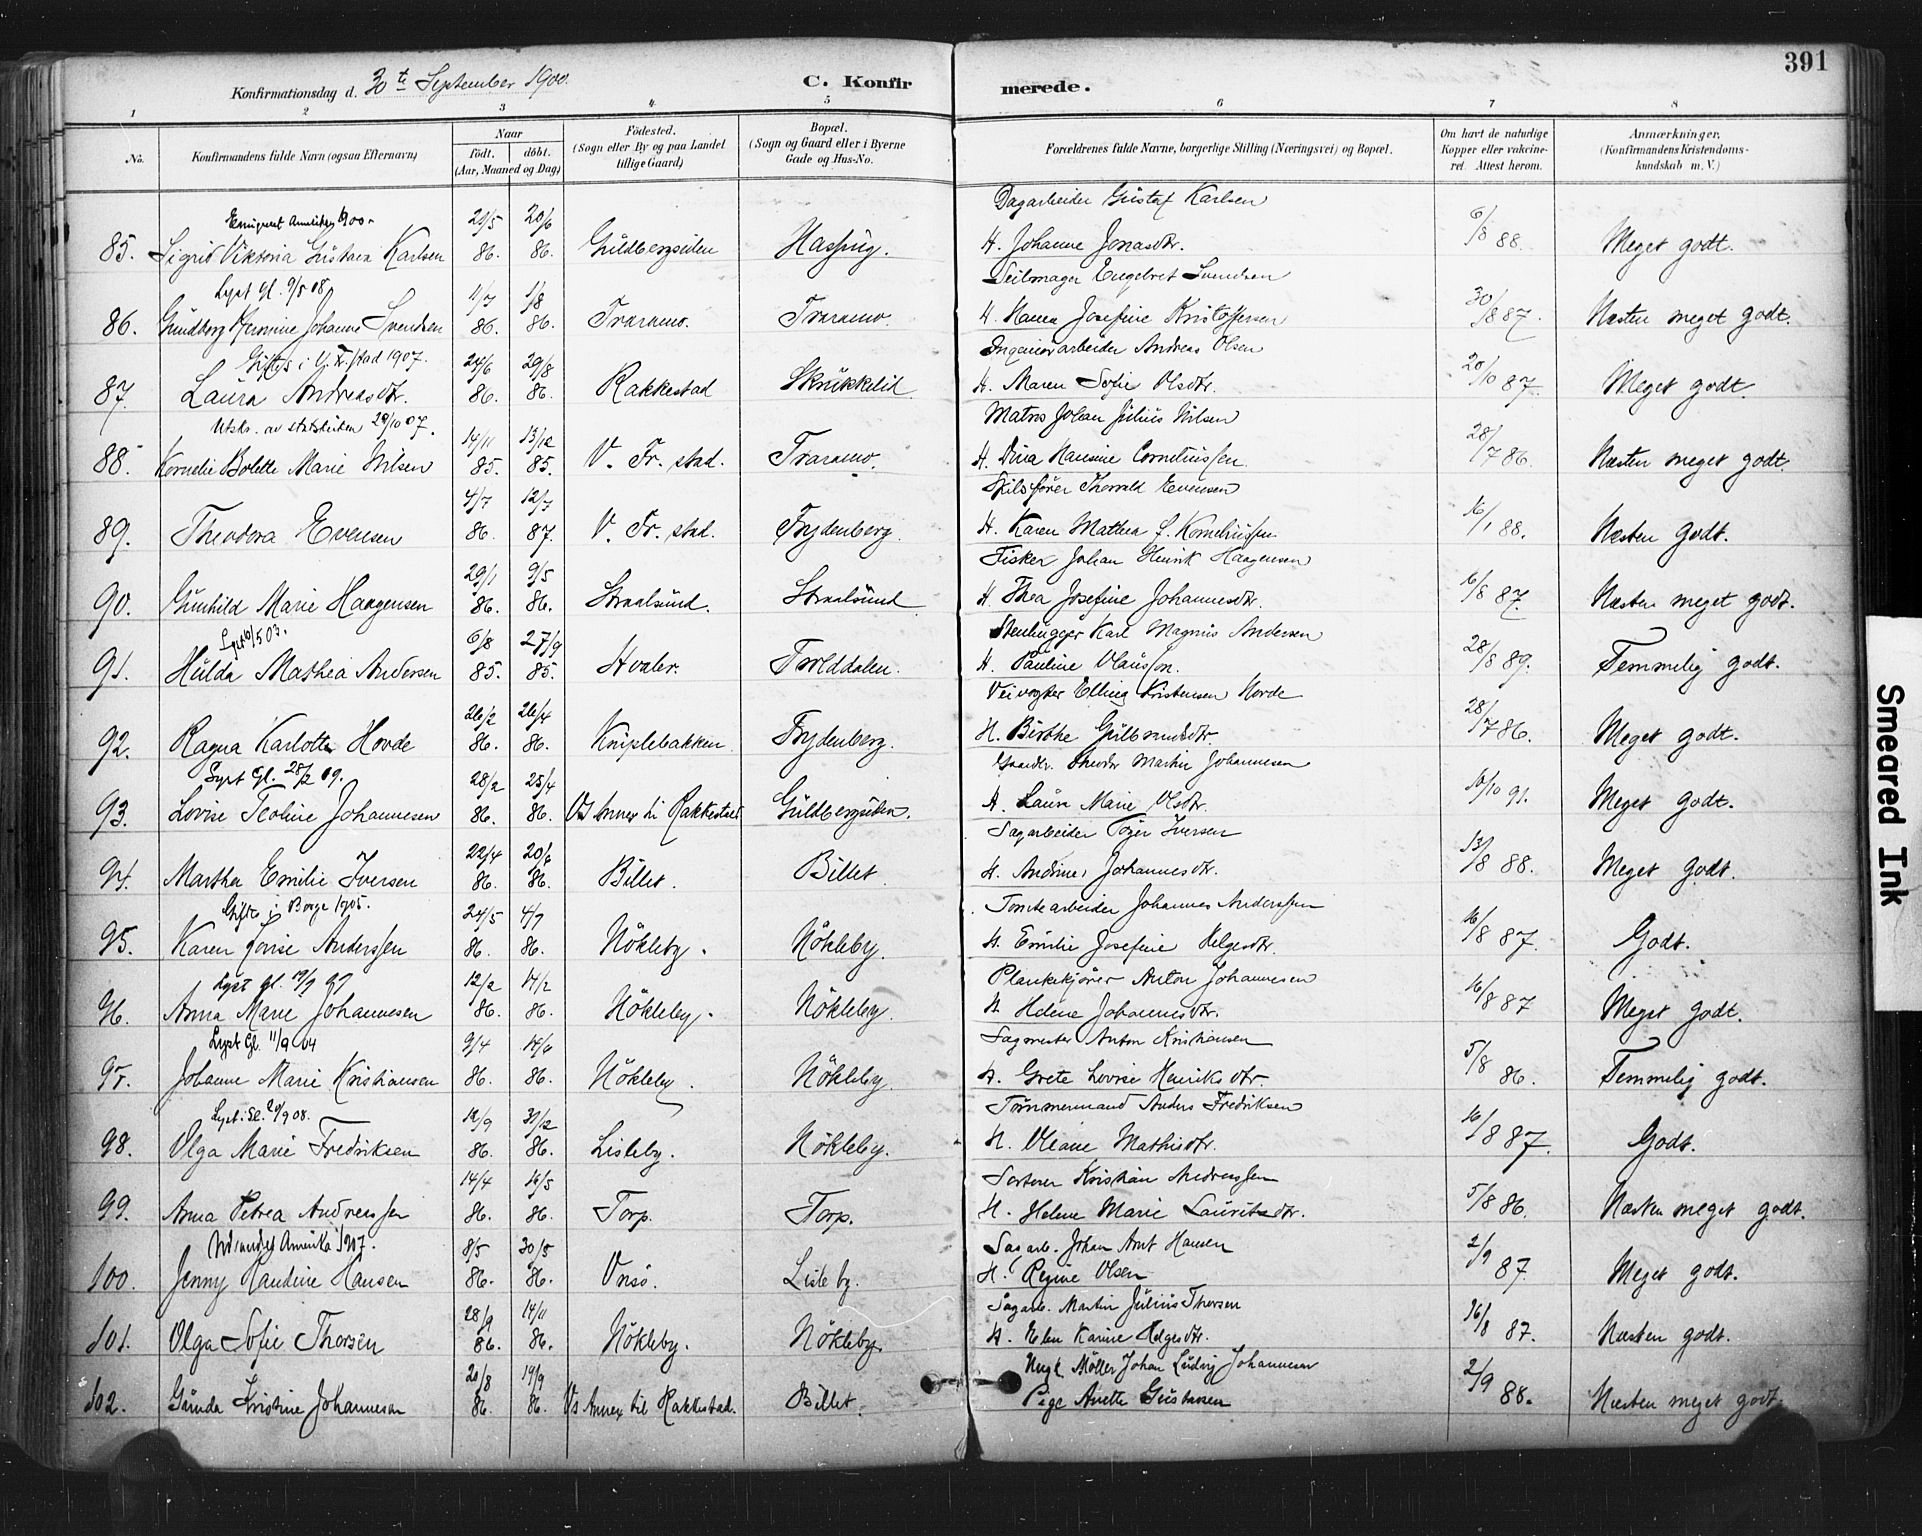 391
Konfirmationsdag d. 30te September 1900.
C. Konfirmerede.
1 2 3 4 5 6 7 8
No.
Konfirmandens fulde Navn (ogsaa Efternavn)
Naar
födt. döbt.
(Aar, Maaned og Dag)
Födested.
(Sogn eller By og paa Landet
tillige Gaard)
Bopæl.
(Sogn og Gaard eller i Byerne
Gade og Hus-No.
Forældrenes fulde Navne, borgerlige Stilling (Næringsvei) og Bopæl.
Om havt de naturlige
Kopper eller vakcine-
ret. Attest herom.
Anmærkninger.
(Konfirmandens Kristendoms-
kundskab m. V.)
Amerika 1900 21/5 20/6 Dagarbeider Gustaf Karlsen 6/8
85. Sigrid Viktoria Gustava Karlsen 86. 86. Guldbergsiden Hassing. H. Johanne Jonasdtr. 88. Meget godt.
Lyst Gl. 9/5 08 11/7 1/8 Seilmager Engebret Svendsen 30/8
86. Gundborg Hermine Johanne Svendsen 86. 86. Traramo. Traramo. H. Hanna Josefine Kristoffersen 87. Næsten meget godt.
Giftes i V. Fr.stad 1907. 24/6 29/8 Andreas Olsen 20/10
87. Laura Andreasdtr. 86. 86. Rakkestad Skrikkelid H. Maren Sofie Olsdtr. 87. Meget godt.
Utskr. av statskirken 29/10 07. 14/11 13/12 Matros Johan Julius Nilsen 28/7
88. Kornelie Bolette Marie Nilsen 85. 85. V. Fr. stad. Traramo. H. Dina Hansine Corneliussen. 86. Næsten meget godt.
4/7 12/7 Skibsfører Thorvald Evensen 16/1
89. Theodora Evensen 86. 87. V. Fr. stad. Frydenberg. H. Karen Mathea f. Korneliussen 88. Næsten godt.
29/1 9/5 Fisker Johan Henrik Haagensen 6/8
90. Gunhild Marie Haagensen 86. 86. Straalsund. Straalsund H. Thea Josefine Johannesdtr. 87. Næsten meget godt.
Lyst 6/5 03. 6/8 27/9 Stenhugger Karl Magnus Andersen 28/8
91. Hulda Mathea Andersen 85. 85. Hvaler. Trolddalen. H. Pauline Olaussen. 89. Temmelig godt.
26/2 26/4 Veivogter Elling Kristensen Hovde 28/7
92. Ragna Karlotte Hovde 86. 86. Kniplebakken Frydenberg. H. Birthe Gulbrandsdtr. 86. Meget godt.
Lyst Gl. 28/2 09. 28/2 25/4 Theodor Martin Johannesen 10/10
93. Lovise Teoline Johannesen 86. 86. Os Annex til Rakkestad Guldbergsiden. H. Laura Marie Olsdtr. 91. Meget godt.
22/4 20/6 Sagarbeider Iversen 13/8
94. Martha Emilie Iversen 86. 86. Billet. Billet H. Andrine Johannesdtr. 88. Meget godt.
Gifte i Borge 1905. 24/5 4/7 Tomtearbeider Johannes Anderssen 16/8
95. Karen Lovise Anderssen 86. 86. Nökleby. Nökleby. H. Emilie Josefine Helgesdtr. 87. Godt.
Lyst Gl. 12/2 14/2 Plankekjører Anton Johannesen 16/8
96. Anna Marie Johannesen 86. 86. Nökleby. Nökleby. H. Helene Johannesdtr. 87 Meget godt.
Lyst Gl. 11/9 04 9/4 14/6 Sagmester Anton Kristiansen 5/8
97. Johanne Marie Kristiansen 86. 86. Nökleby. Nökleby. H. Grete Lovise Henriksdtr. 86. Temmelig godt.
Lyst Gl. 20/9 08. 12/9 31/12 Tömmermand Anders Fredriksen 16/8
98. Olga Marie Fredriksen 86. 86. Lisleby. Nökleby. H. Oleane Mathisdtr. 87. Godt.
14/4 16/5 Sorterer Kristian Andreassen 5/8
99. Anna Petrea Andreassen 86. 86. Torp. Torp. H. Helene Marie Lauritsdtr. 86. Næsten meget godt.
Amerika 1907. 8/5 30/5 Sagarb. Johan Arnt Hansen 2/9
100. Jenny Randine Hansen 86. 86. Onsö. Lisleby. H. Regine Olsen 87. Meget godt.
28/9 14/11 Sagarb. Martin Julius Thorsen 16/8
101. Olga Sofie Thorsen 86. 86. Nökleby. Nökleby. H. Elen Karine Helgesdtr. 87. Næsten godt.
20/8 19/9 Ungk. Möller Johan Ludvig Johannesen 2/9
102. Gunda Kristine Johannesen 86. 86. Os Annex til Rakkestad. Billet. Pige Anette Gustavsen 88. Næsten meget godt.
Smeared Ink